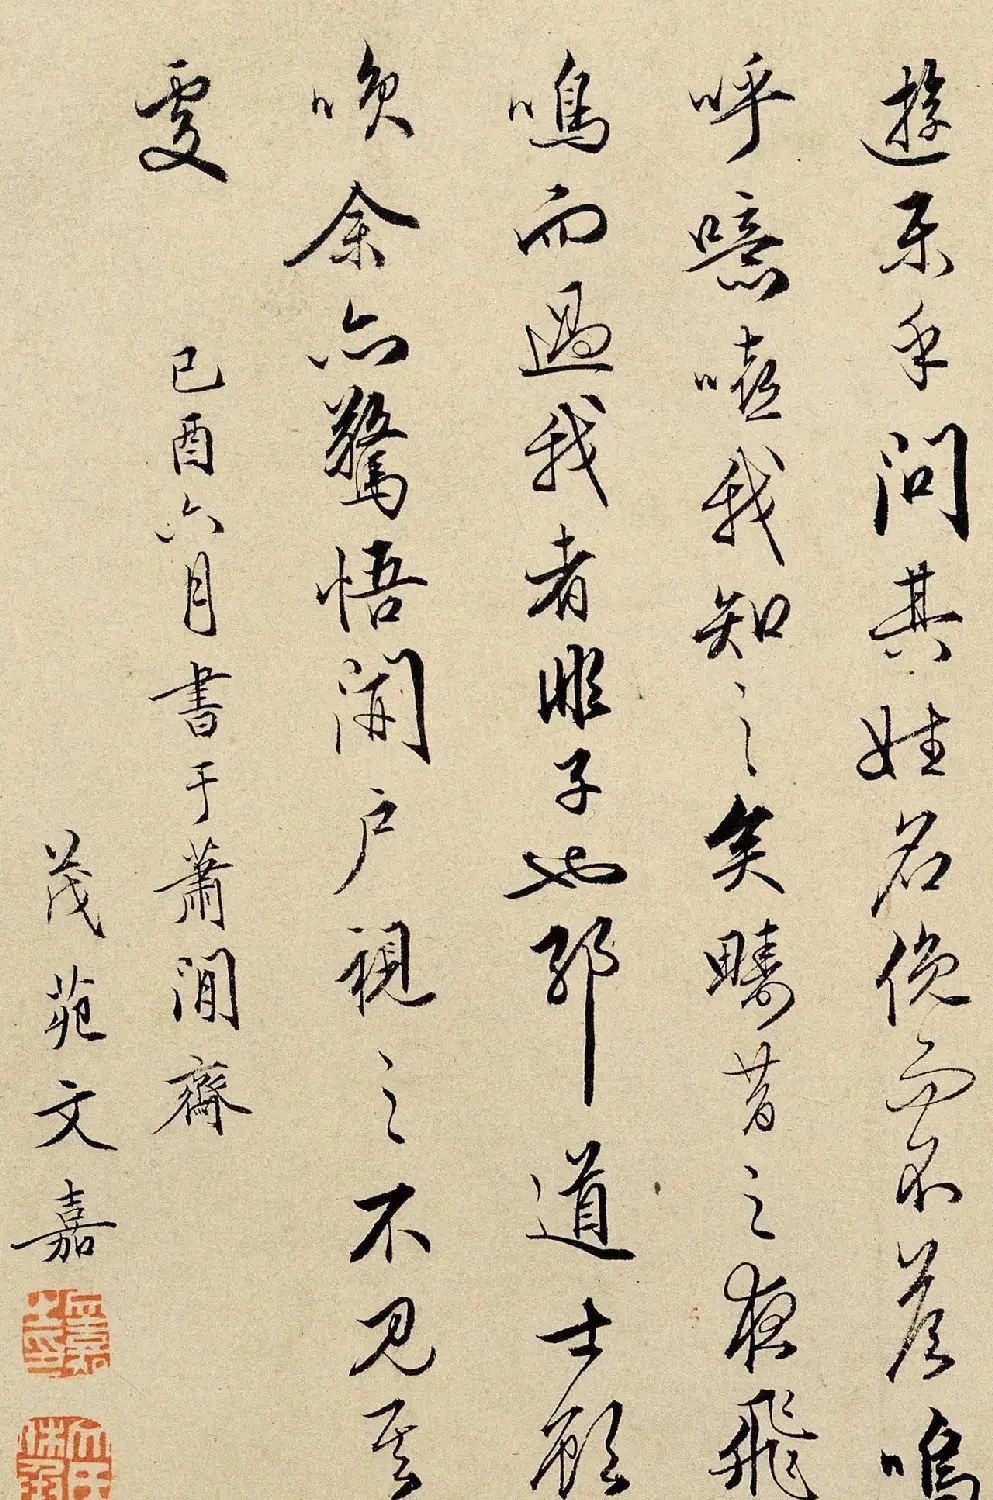 遊樂乎問其姓名俛而不荅嗚
呼噫嘻我知之矣疇昔之夜飛
鳴而過我者非子也耶道士顧
笑余亦驚悟開户視之不見其
處
己酉六月書于蕭閒齋
茂苑文嘉